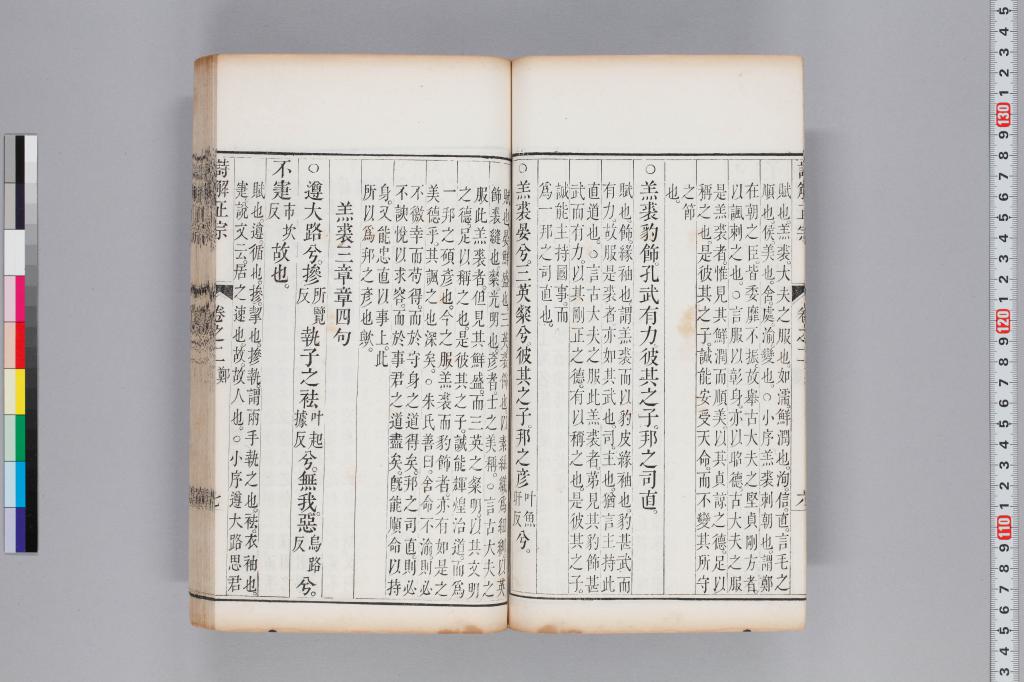 賦也。羔裘。大夫之服也。如濡。鮮潤也。洵。信。直。言毛之
順也。侯。美也。舍。處。渝。變也。○小序羔裘刺朝也。謂鄭
在朝之臣。皆委靡不振。故舉古大夫之堅貞剛方者
以諷刺之也。○言服以彰身。亦以昭德。古大夫之服
是羔裘者。惟見其鮮潤而順美。以其貞諒之德。足以
稱之也。是彼其之子。誠能安受天命。而不變其所守
之節
也。
○羔裘豹飾孔武有力彼其之子。邦之司直。
賦也。飾。緣袖也。謂羔裘而以豹皮緣袖也。豹甚武而
有力。故服是裘者。亦如其武也。司。主也。猶言主持此
直道也。○言古大夫之服此羔裘者。苐見其豹飾甚
武而有力。以其剛正之德。有以稱之也。是彼其之子。
誠能主持國事。而
爲一邦之司直也。
○羔裘晏兮。三英粲兮。彼其之子。邦之彦叶魚肝反兮。
賦也。晏。鮮盛也。三英。裘飾也。以素絲織爲組紃。以英
飾裘縫也。粲。光明也。彦者。士之美稱。○言古大夫之
服此羔裘者。但見其鮮盛。而三英之粲明。以其文明
之德。足以稱之也。是彼其之子。誠能輝煌治道。而爲
一邦之碩彦也。今之服羔裘而豹飾者。亦有如是之
美德乎。其諷之也深矣。○朱氏善曰。舍命不渝。則必
不徼幸而苟得。而於守身之道得矣。邦之司直。則必
不諛悅以求容。而於事君之道盡矣。旣能順命以持
身。又能忠直以事上。此
所以爲邦之彦也歟。
羔裘三章章四句
○遵大路兮。摻所覽反執子之袪叶起據反兮。無我惡烏路反兮。
不寁市坎反故也。
賦也。遵。循也。摻。擥也。摻執。謂兩手執之也。袪。衣袖也。
寁。說文云。居之速也。故。故人也。○小序遵大路思君
詩解正宗
卷之二
鄭
七